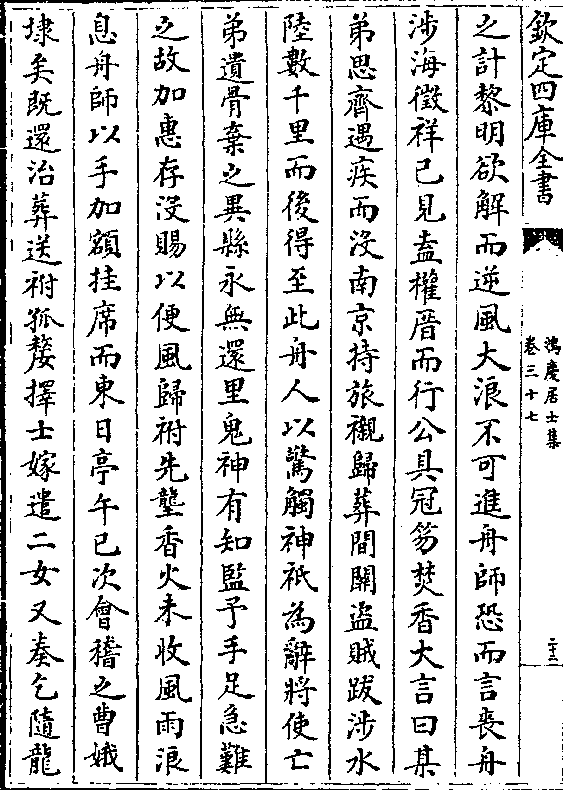 欽定四庫全書
鴻慶居士集
卷三十七
二十三
之計黎明欲解而逆風大浪不可進舟師恐而言喪舟
涉海徵祥已見盍櫂厝而行公具冠笏焚香大言曰某
弟思齊遇疾而没南京持旅櫬歸葬間關盜賊跋涉水
陸數千里而後得至此舟人以驚觸神祇為辭將使亡
弟遺骨棄之異縣永無還里鬼神有知監予手足急難
之故加惠存没賜以便風歸祔先壟香火未收風雨浪
息舟師以手加額挂席而東日亭午已次會稽之曹娥
埭矣既還治葬送祔孤嫠擇士嫁遣二女又奏乞隨龍